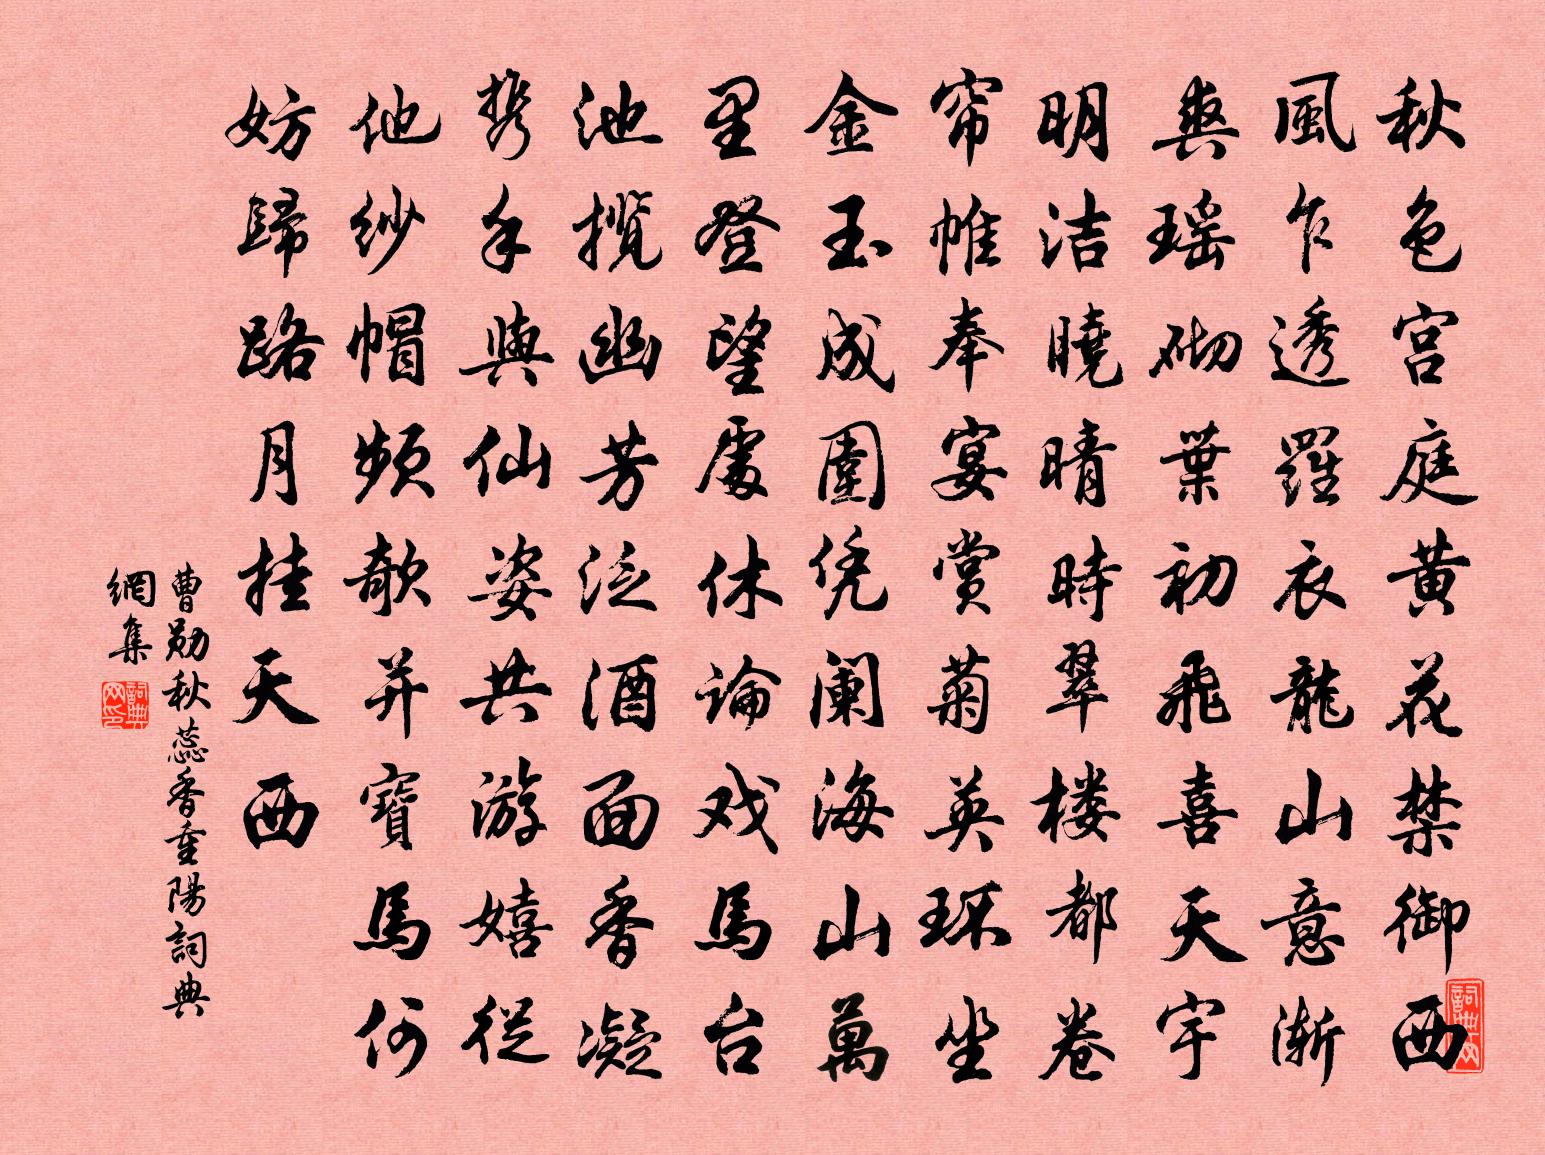 秋色宫庭黄花禁御西
風乍透羅衣龍山意渐
爽瑶砌葉初飛喜天宇
明洁曉晴時翠楼都卷
帘帷奉宴赏菊英环坐
金玉成圍凭阑海山萬
里登望處休论戏馬台
池揽幽芳泛酒面香凝
携手與仙姿共游嬉從
他纱帽频欹并寶馬何
妨歸路月挂天西
曹勋秋蕊香重陽詞典
網集